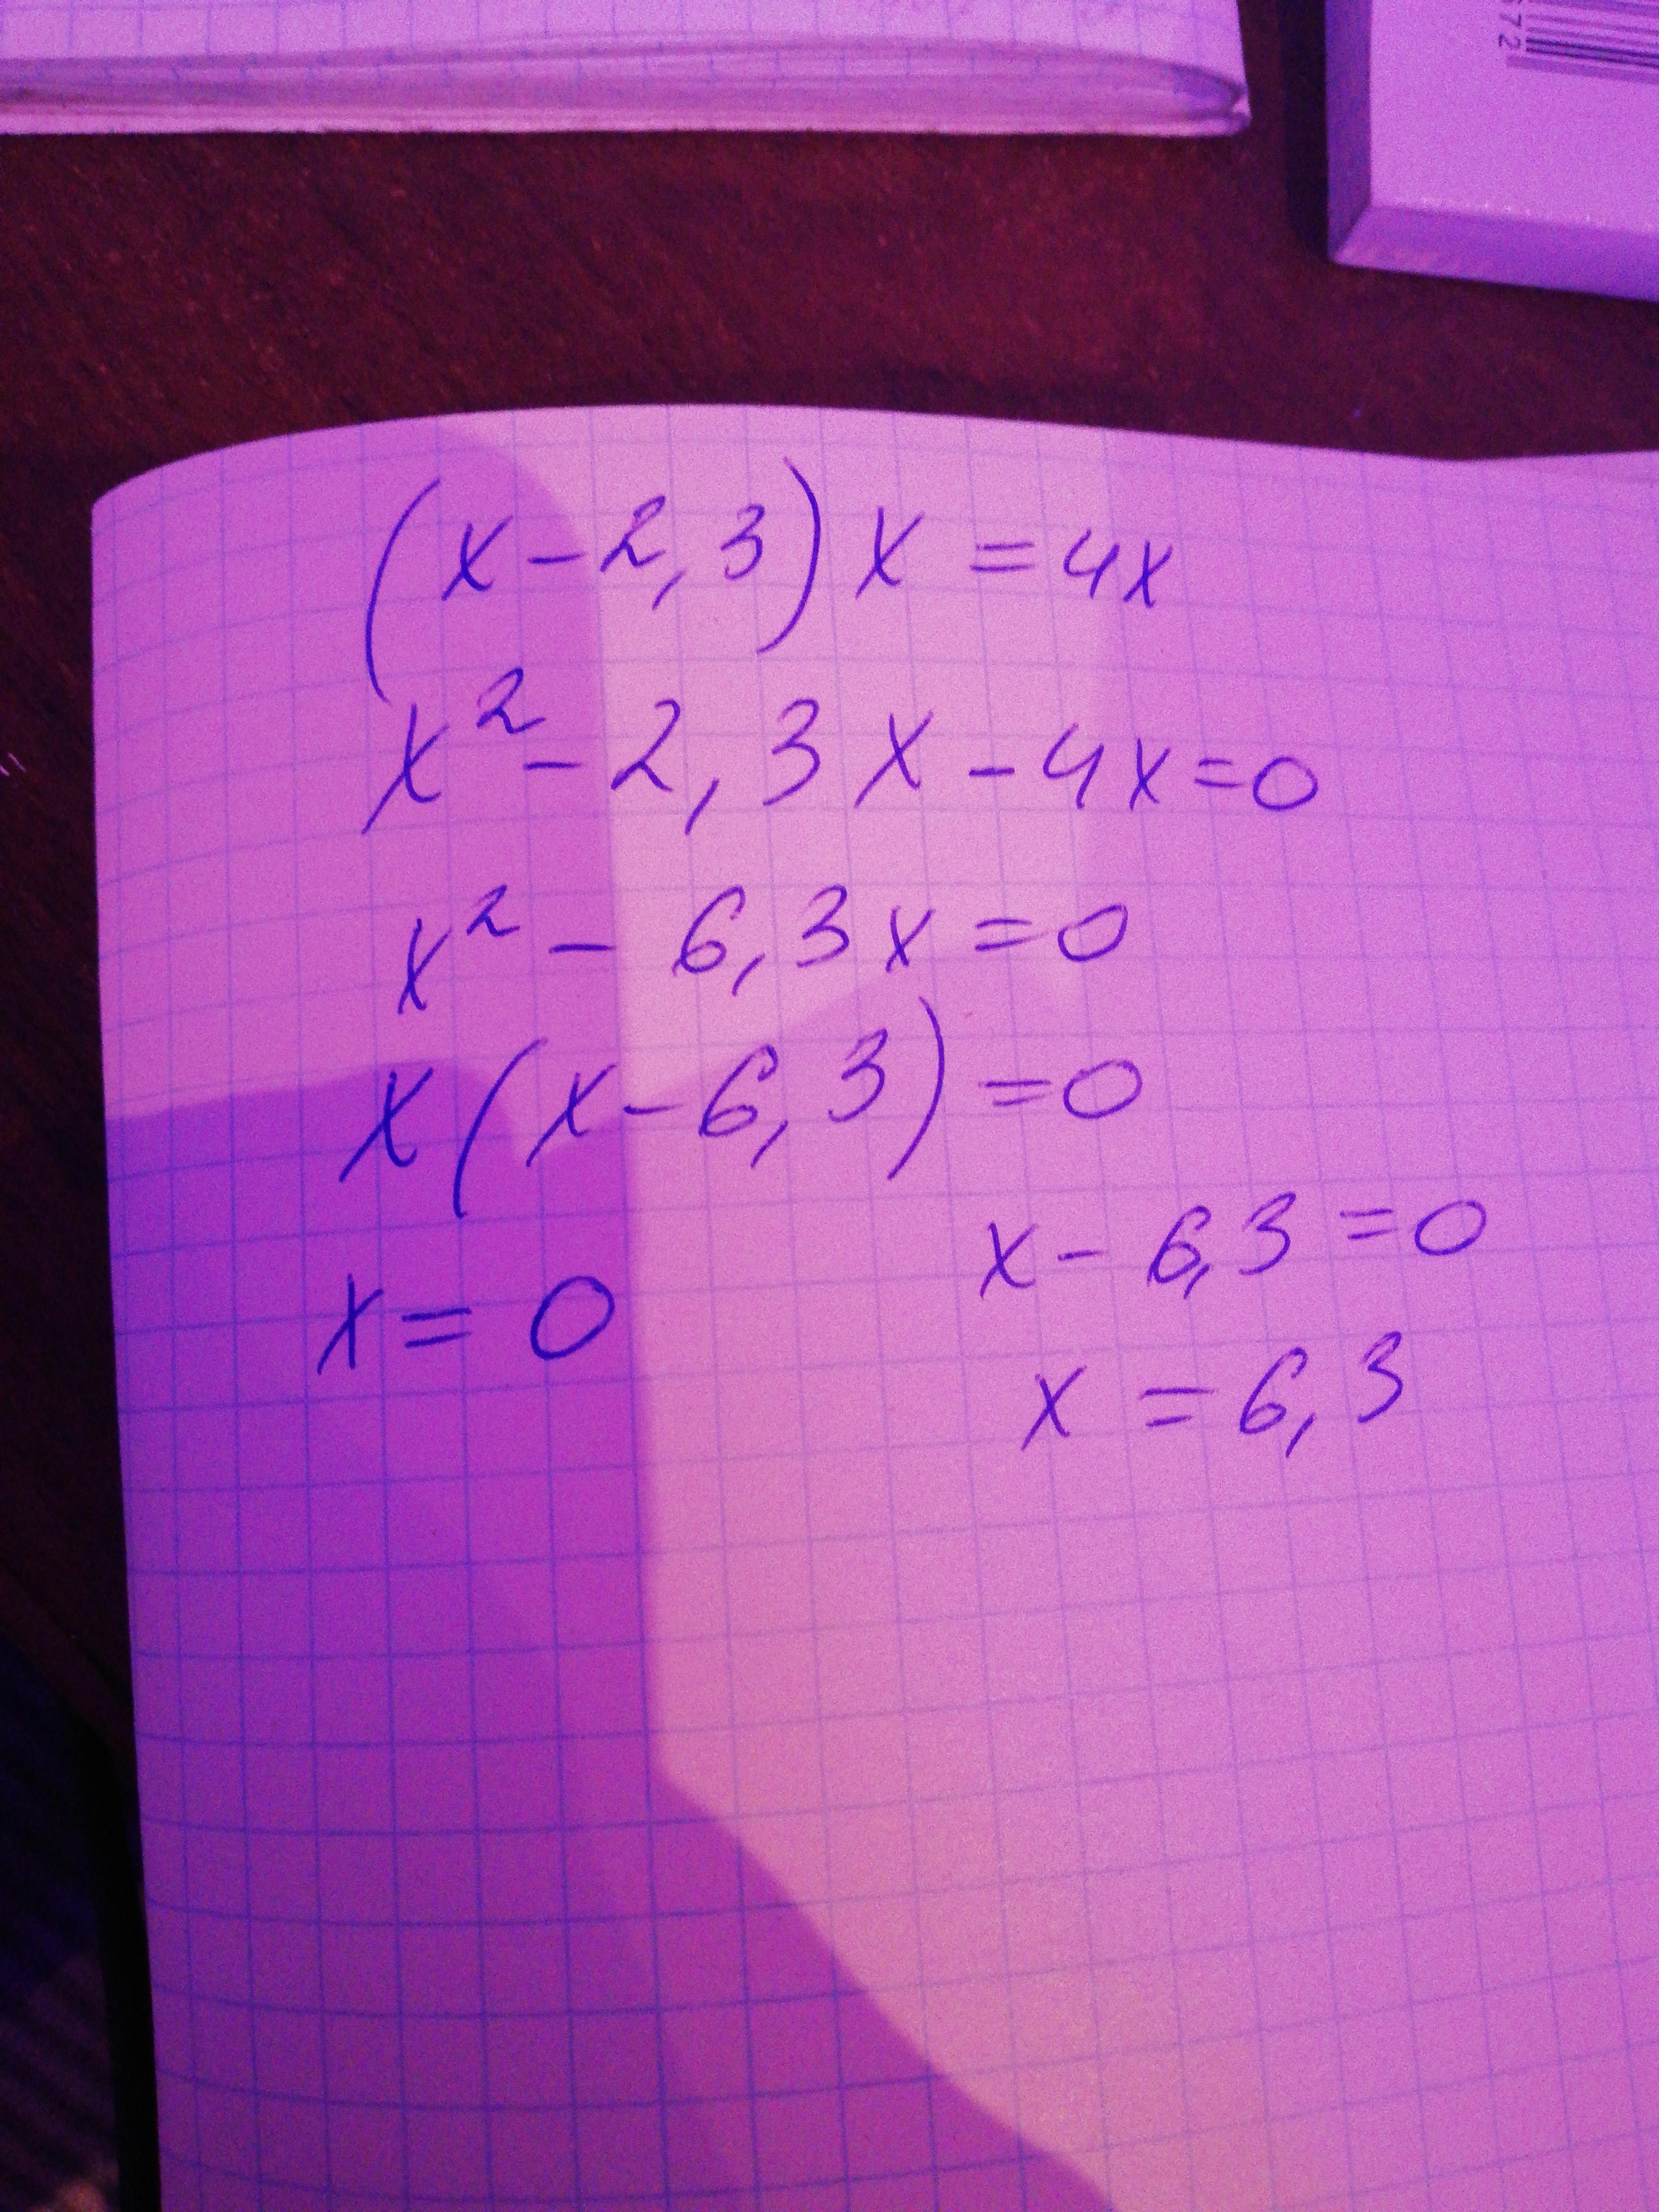 672
(x-2,3)x=4x
x²-2,3x-4x=0
x²-6,3x=0
x(x-6,3)=0
x=0
x-6,3=0
x=6,3